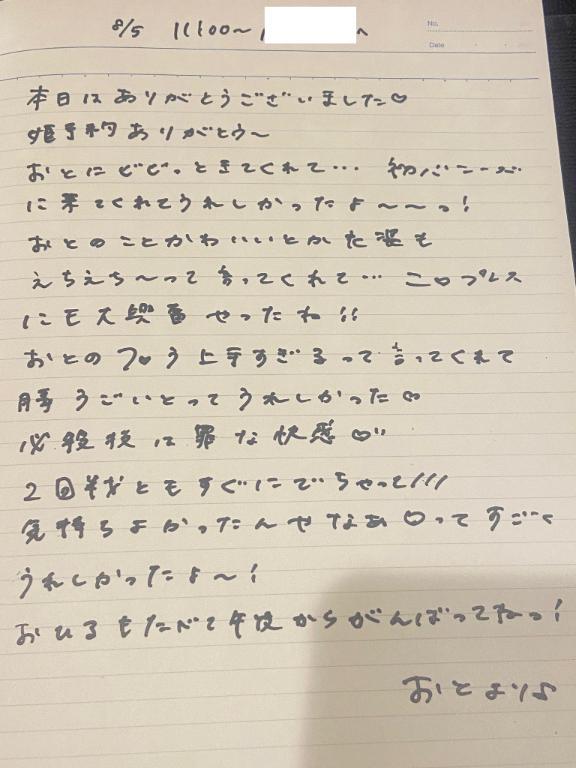 8/5 11:00〜
No.
Date
本日はありがとうございました♡
姫予約ありがとう〜
おとにビビッときてくれて… 初バニーズ
に来てくれてうれしかったよ〜〜っ!
おとのことかわいいとか
えちえち〜って言ってくれて… ニ♡プレス
にも大興奮やったね!!
おとのフ♡ラ上手すぎるって言ってくれて
うごいとって うれしかった♡
は罪な快感♡
2回ともすぐにでちゃって///
気持ちよかったんやなぁ♡ってすごく
うれしかったよ〜!
おひるもたべて午後からがんばってねっ!
おとより♪